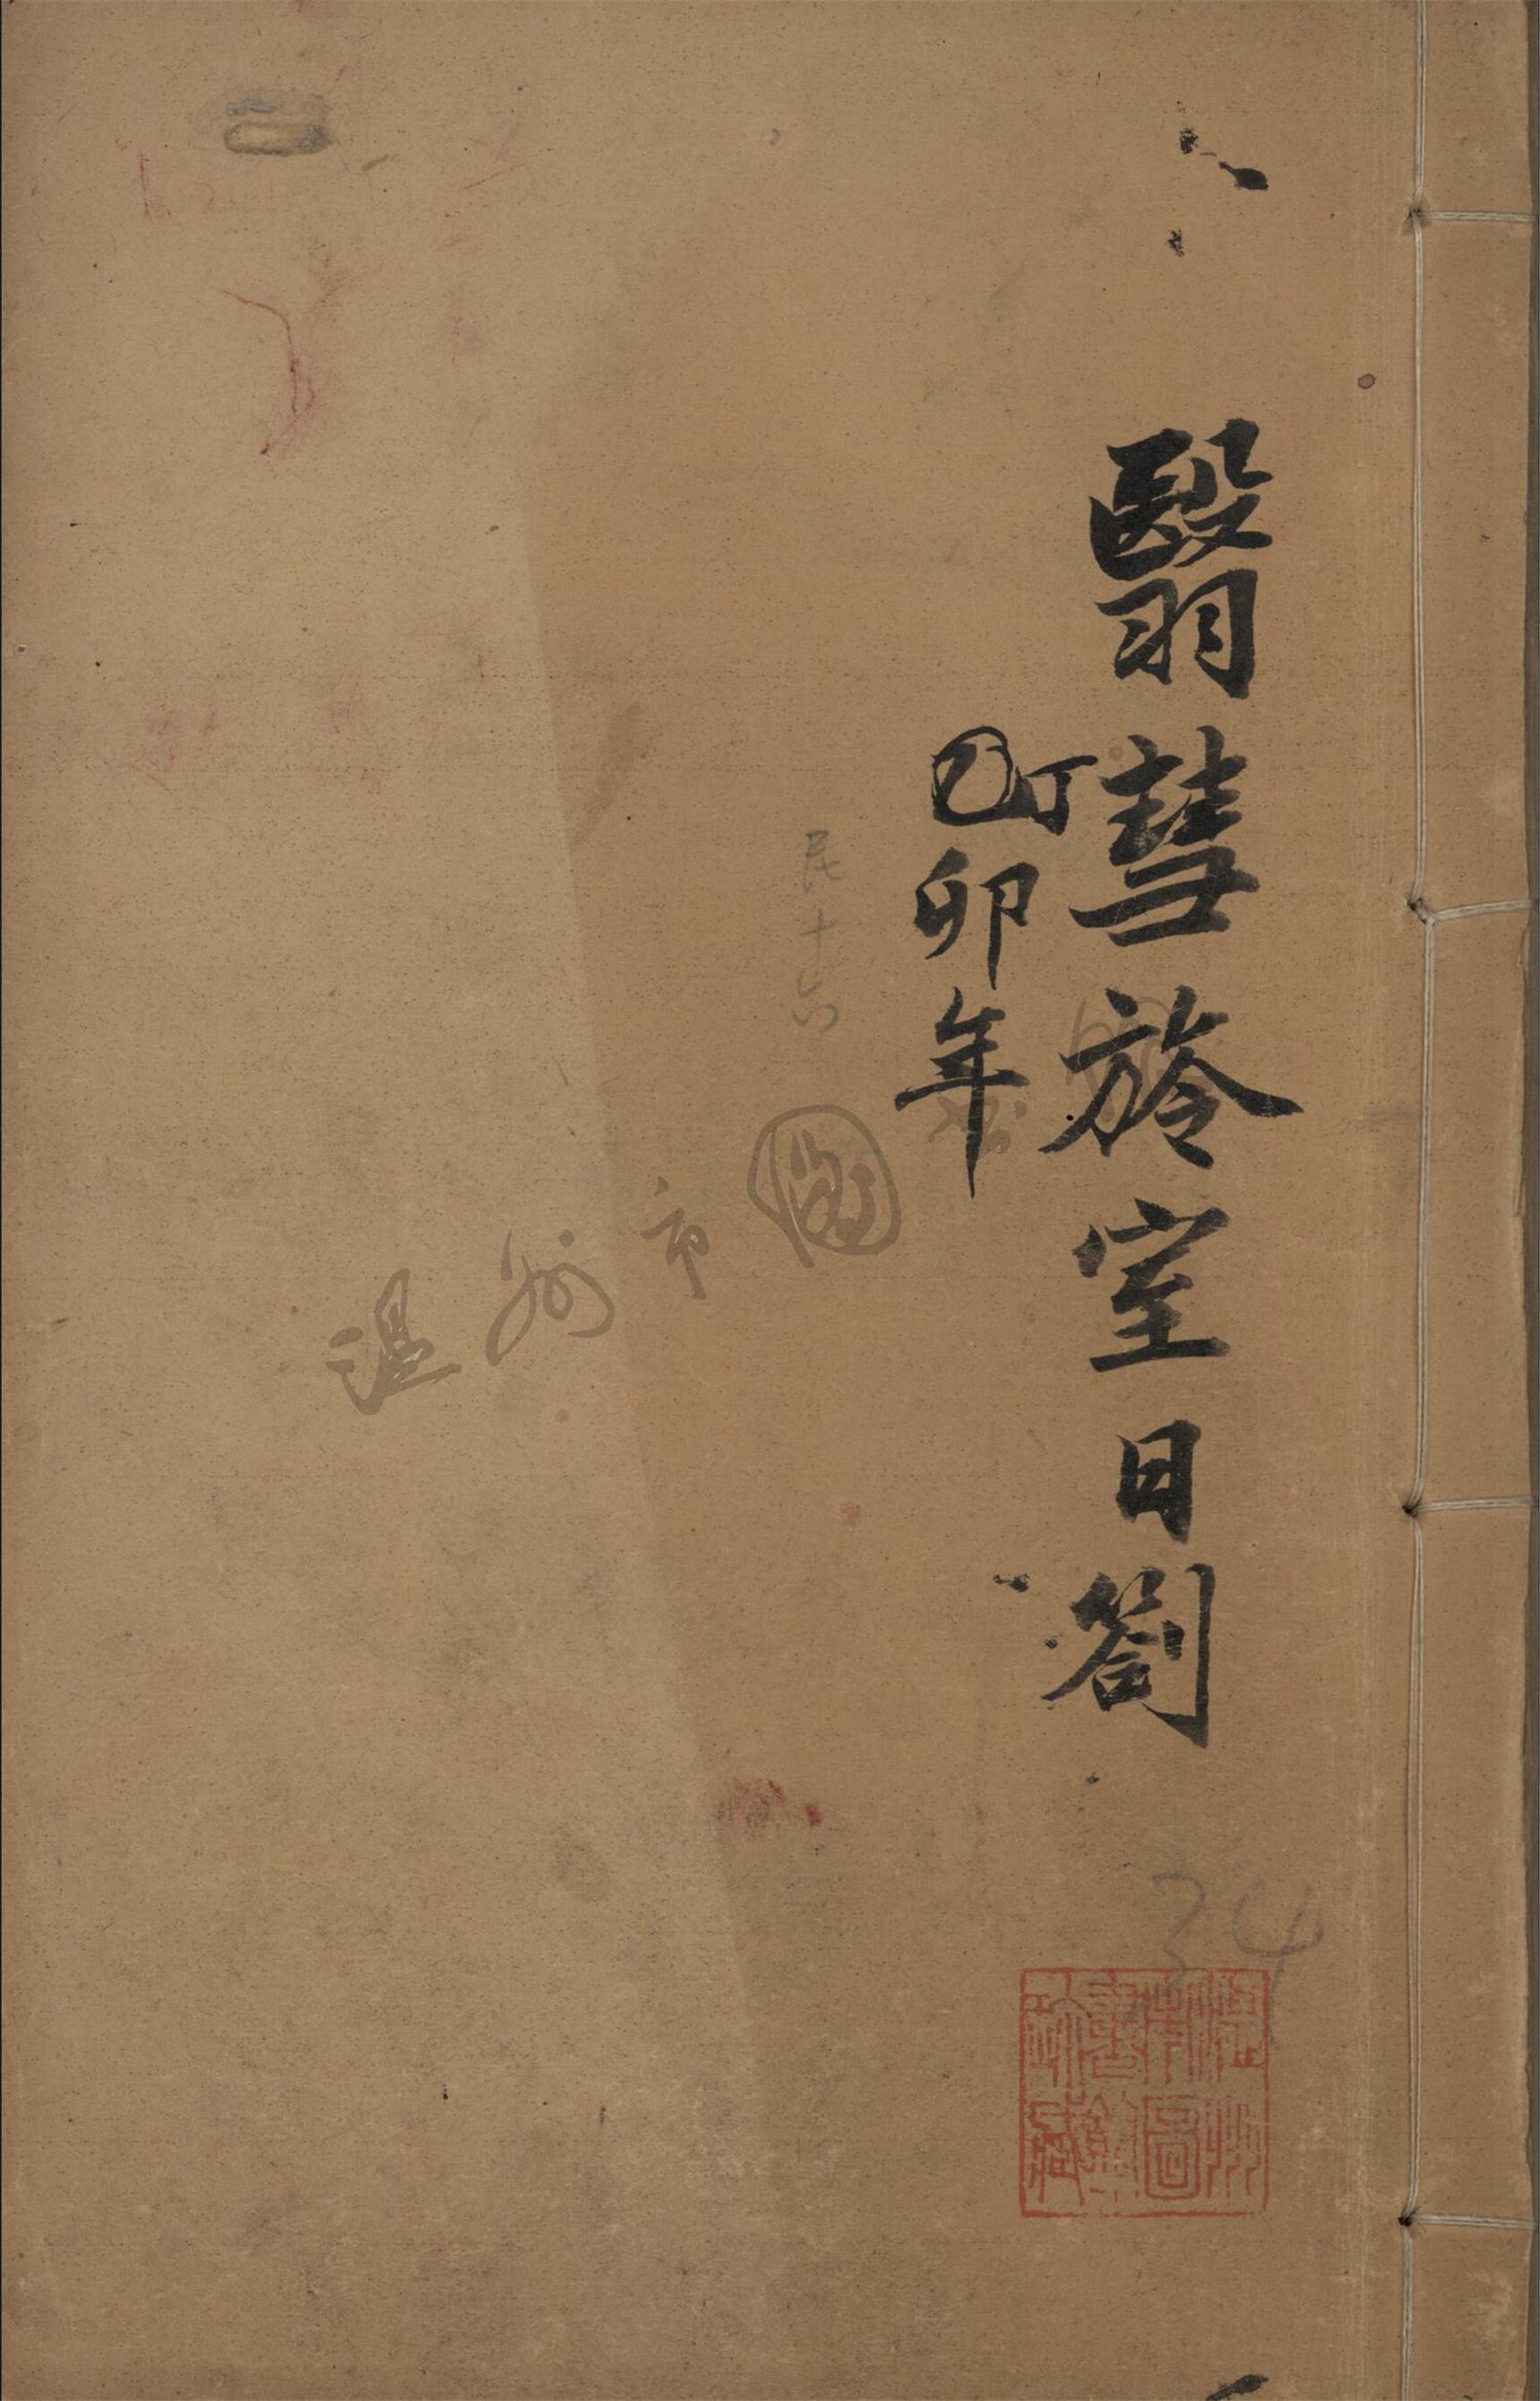 翳彗旍室日劄
丁
卯年
民十六
温州市圖
34
溫州
市圖
書館
珍藏